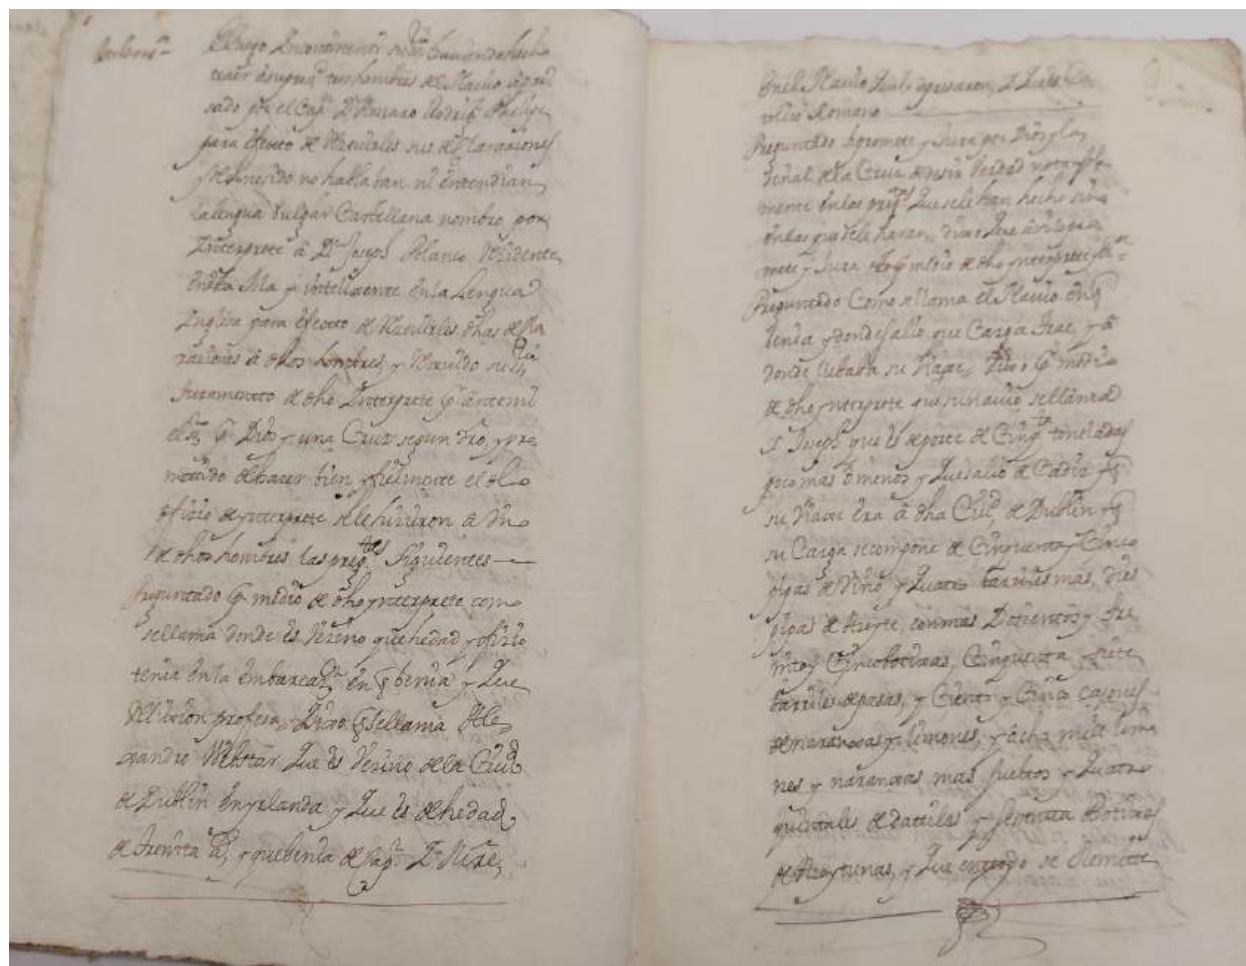 Declaras.on
E luego Incontinenti su m.d haviendo hecho
traer âsupres.a tres hombres de el Navio apre
sado por el Cap.n D.n Amaro Rodrig.z Phelipe
para efecto de Resevirles sus declaraciones
y no hablaban ni entendian
la lengua bulgar Castellana nombro por
Interprete â D.n Joseph Blanco Residente
en esta Ysla y inteligente en la Lengua
Inglesa para efecto de Resevirles dhas decla
raciones â dhos hombres, y Resevido su m.d
Juramento de dho Interprete q.e ante mi
el es.no p.r Dios y una Cruz segun dro, y pro
metido de haser bien y fielmente el dho
ofisio de ynterprete se le hisieron â Vno
de dhos hombres las preg.tas Siguientes
Preguntado p.r medio de dho ynterprete como
se llama donde es Vesino que hedad y ofisio
tenia en la embarcaz.on en q.e benia y que
Relixion profesa, Dixo q.e se llama Ale
xandro Webstar que es Vesino de la Ciud.d
de Dublin en yrlanda y que es de hedad
de treinta a.s y que benia de Cap.n D.n
en el Navio que le apresaron, y que es Ca
tolico Romano
Preguntado si promete y Jura por Dios y la
señal de la Cruz de desir berdad no tan sola
mente en las preg.tas que se le han hecho sino
en las que se le haran, dixo que asi lo pro
mete y Jura p.r medio de dho ynterprete
Preguntado Como se llama el Navio en q.e
benia y donde salio que Carga trae, y â
donde llebaba su Viaje, Dixo q.e p.r medio
de dho ynterprete que su navio se llama
S.n Joseph que es de porte de Cinq.ta toneladas
poco mas ô menos y que salio de Cadiz y q.e
su Viaje era â dha Ciud.d de Dublin y q.e
su Carga se compone de Cinquenta y Cinco
pipas de Vino y quatro barriles mas, dies
pipas de Aseyte, con mas Dosientos y tre
inta y Cinco botixas, Cinquenta y siete
barriles de pasas, y Ciento y Cinco caxones
de naranxas y limones, y ôcho mill limo
nes y naranxas mas sueltos y quatro
quintales de datiles y Botixas
de Aseytunas, y que en todo se Remite